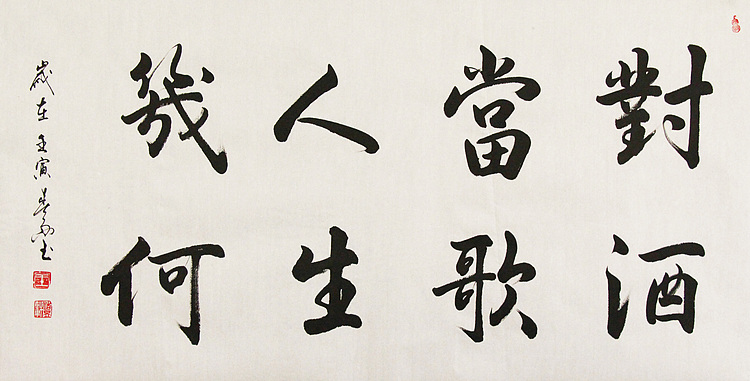 對酒
當歌
人生
幾何
歲在壬寅春